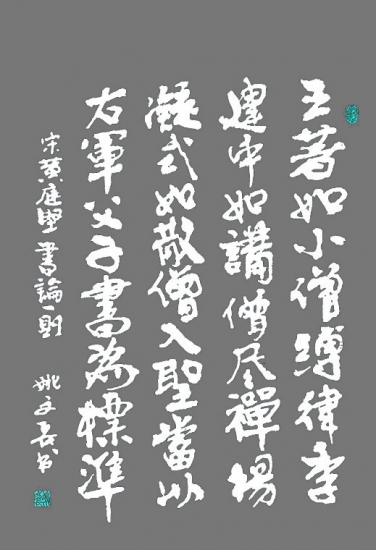 王著如小僧縛律李
建中如講僧参禪楊
凝式如散僧入聖當以
右軍父子書為標準
宋黄庭堅書論一則
姚文书